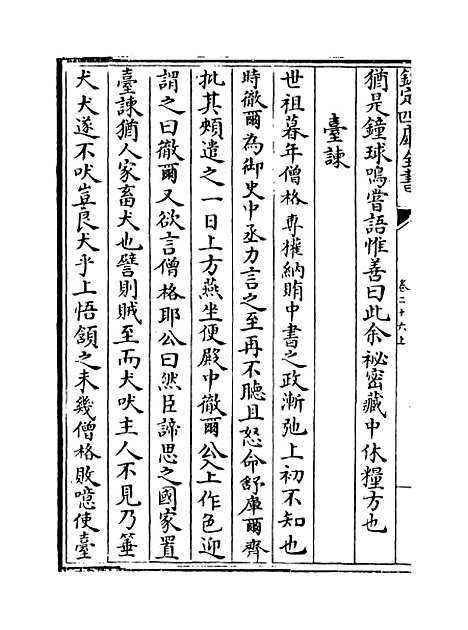 欽定四庫全書
卷二十六上
猶是鐘球鳴嘗語惟善曰此余祕密藏中休糧方也
臺諫
世祖暮年僧格專權納賄中書之政漸弛上初不知也
時徹爾為御史中丞力言之至再不聽且怒命舒庫爾齊
批其頰遣之一日上方燕坐便殿中徹爾公入上作色迎
謂之曰徹爾又欲言僧格耶公曰然臣諦思之國家置
臺諫猶人家畜犬也譬則賊至而犬吠主人不見乃箠
犬犬遂不吠豈良犬乎上悟頷之未幾僧格敗噫使臺